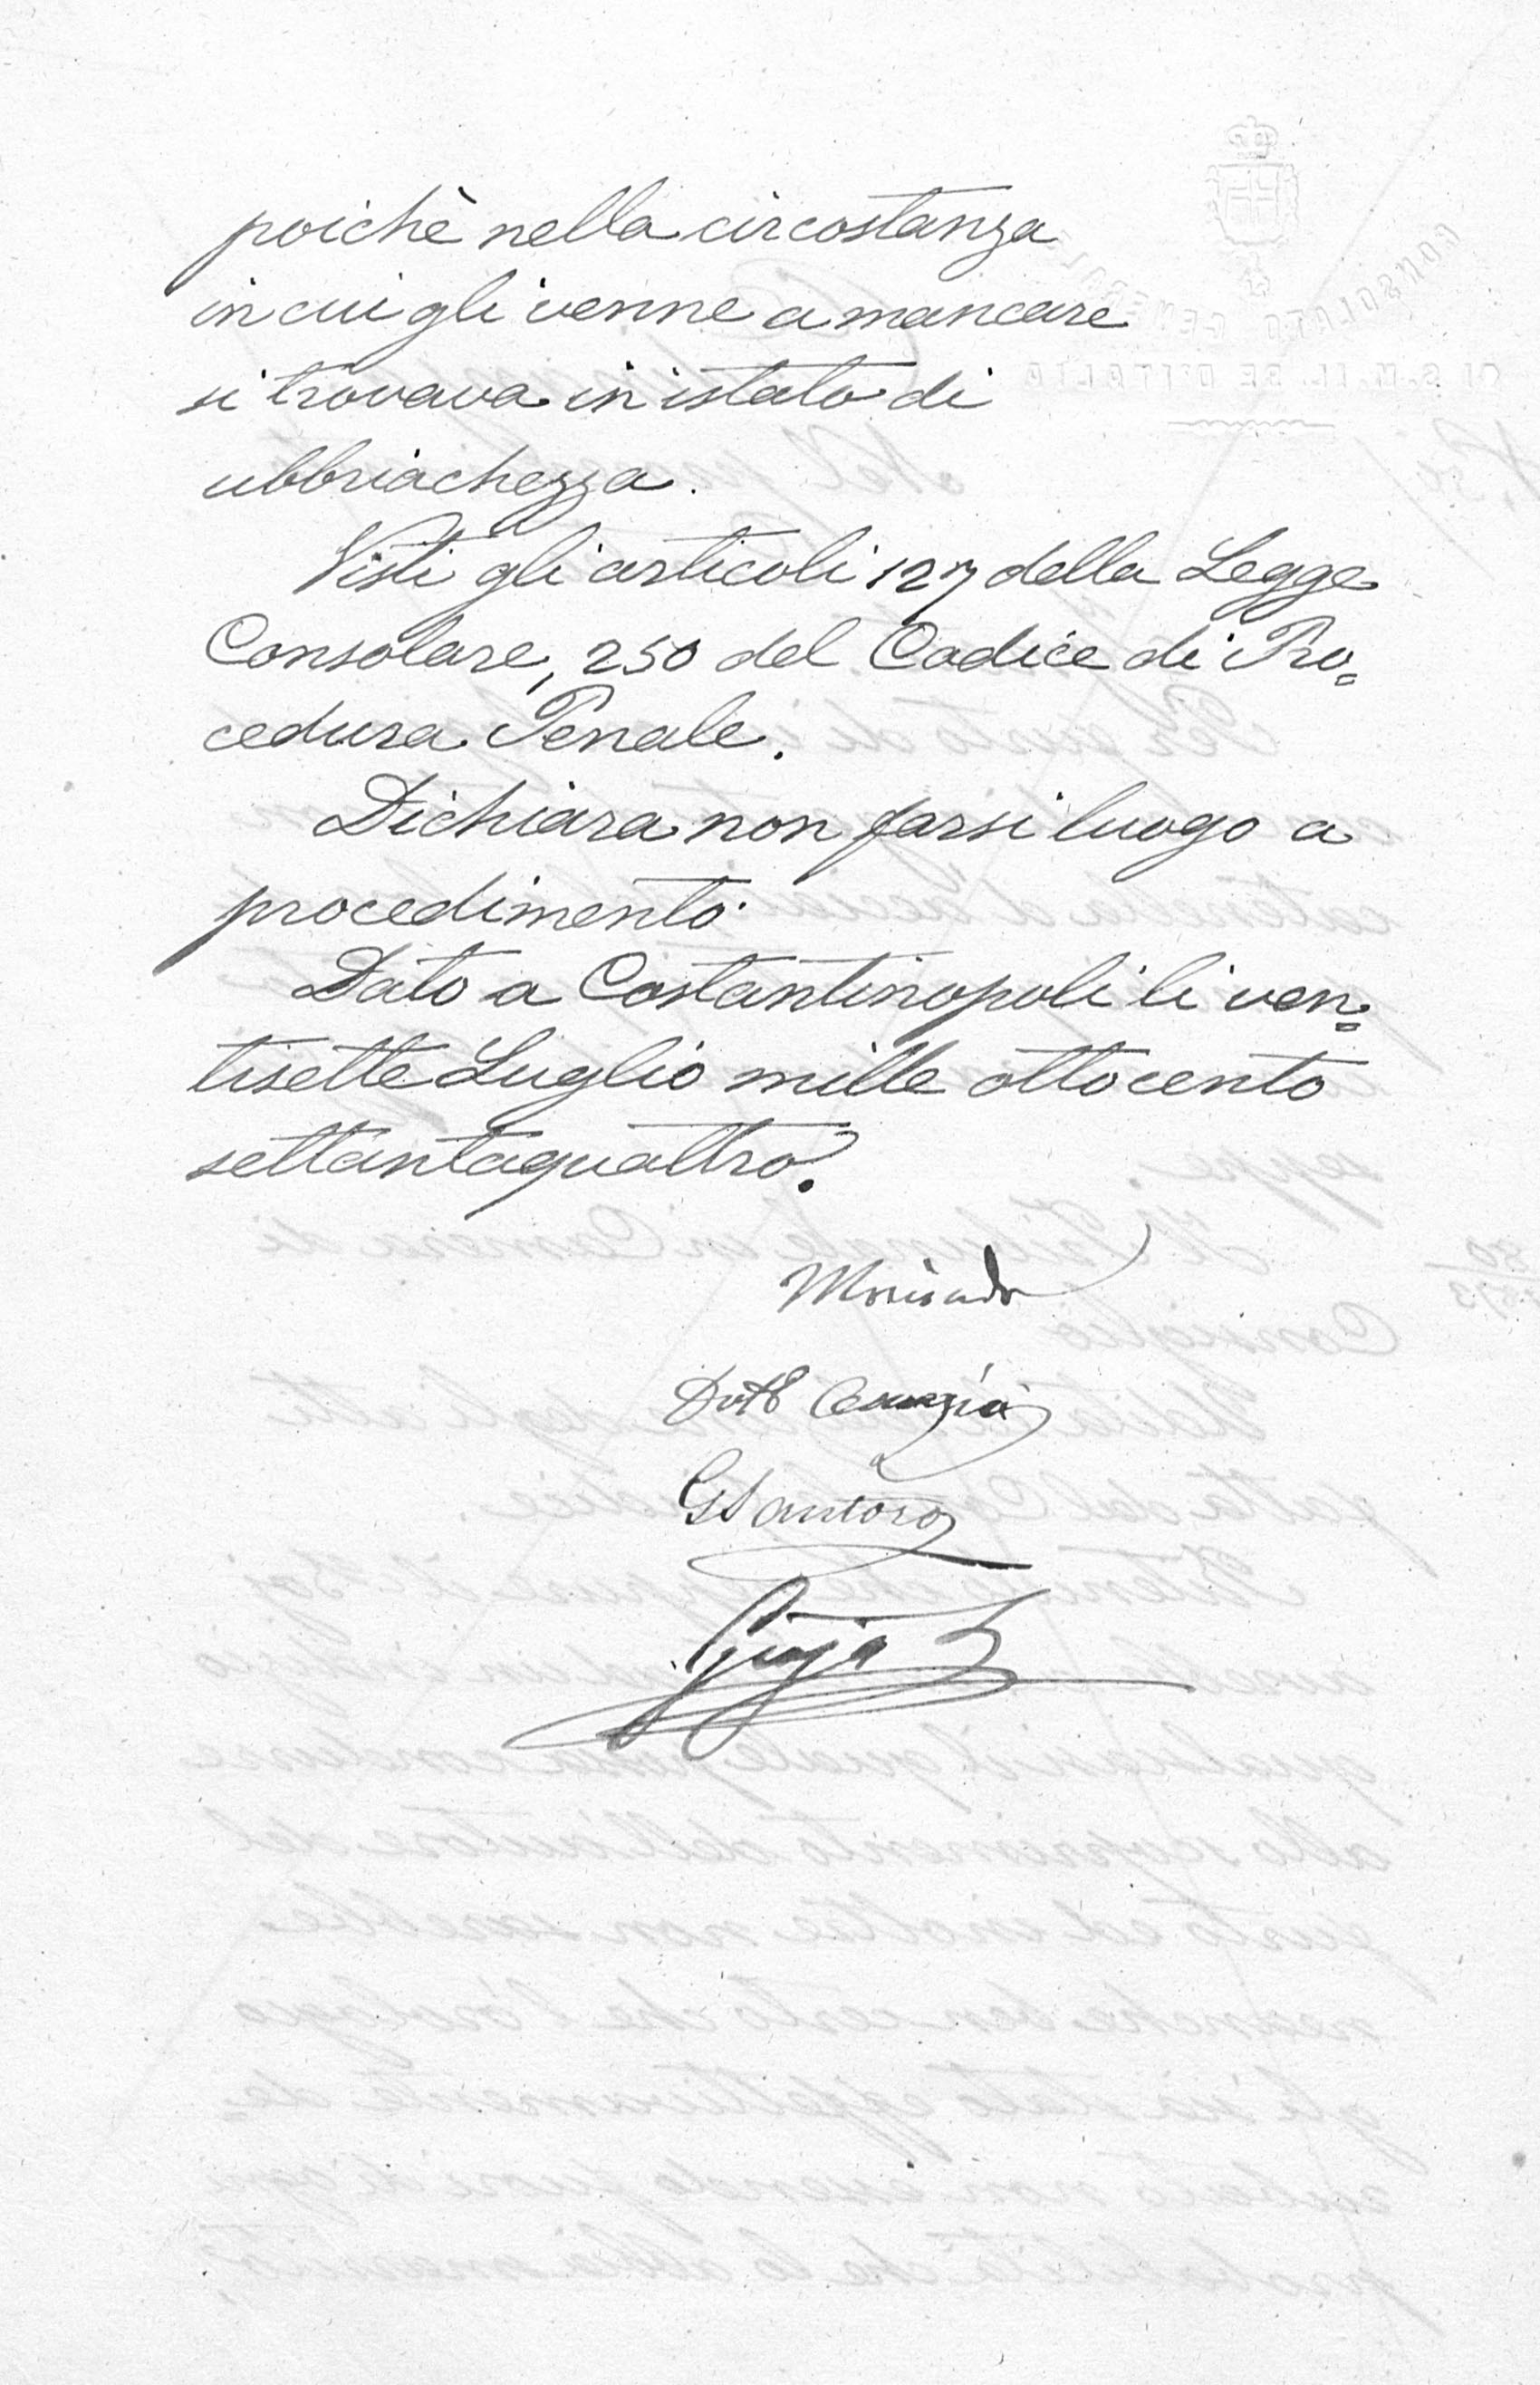 poichè nella circostanza
in cui gli venne a mancare
si trovava in istato di
ubbriachezza.
Visti gli articoli 127 della Legge
Consolare, 250 del Codice di Pro=
cedura Penale.
Dichiara non farsi luogo a
procedimento.
Dato a Costantinopoli li ven=
tisette Luglio mille ottocento
settantaquattro.
GSantoro
Gioja